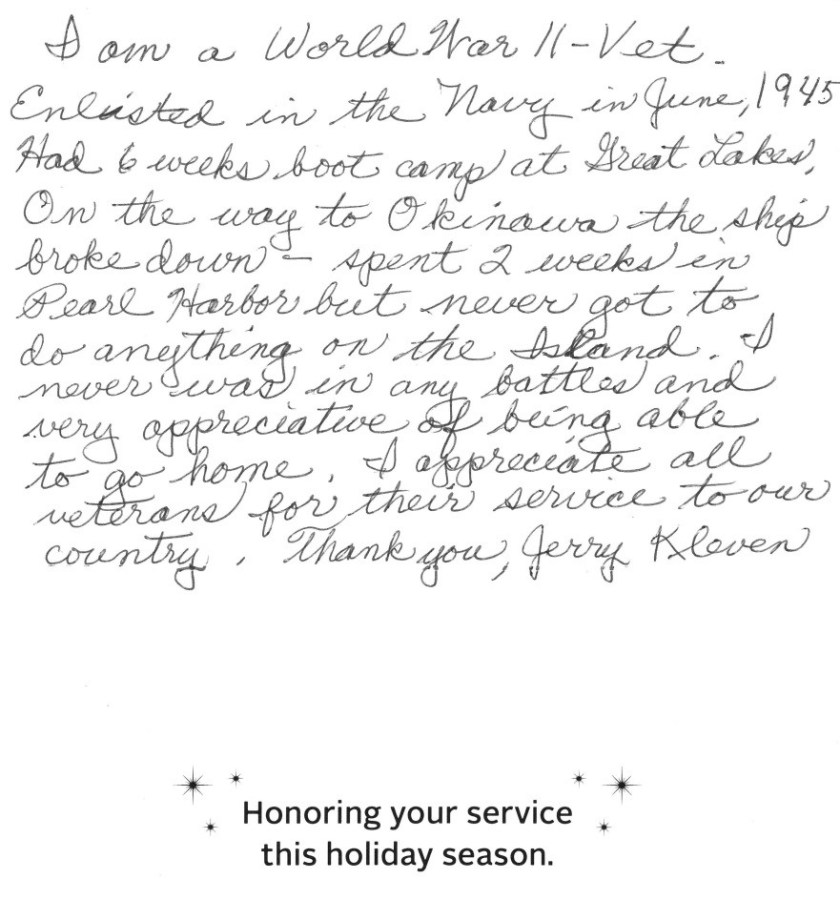 I am a World War II - Vet.
Enlisted in the Navy in June, 1945
Had 6 weeks boot camp at Great Lakes,
On the way to Okinawa the ship
broke down - spent 2 weeks in
Pearl Harbor but never got to
do anything on the Island. I
never was in any battles and
very appreciative of being able
to go home. I appreciate all
veterans for their service to our
country. Thank you, Jerry Kleven
Honoring your service
this holiday season.